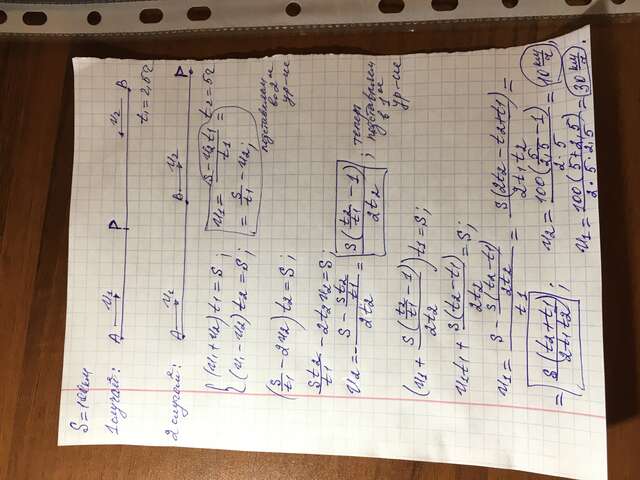 S = 100км
1 случай: A v₁ P v₂ B
t₁ = 2,5ч
2 случай: A v₁ B v₂ P
{ (v₁ + v₂) t₁ = S ; v₁ = (S - v₂t₁)/t₁ = t₂ = 5ч
(v₁ - v₂) t₂ = S ; = S/t₁ - v₂ ;
подставляем
во 2ое
ур-ие
(S/t₁ - 2v₂) t₂ = S ;
St₂/t₁ - 2t₂v₂ = S ;
v₂ = - (S - St₂/t₁)/2t₂ = S(t₂/t₁ - 1)/2t₂ ; теперь
подставляем
в 1ое
ур-ие
(v₁ + S(t₂/t₁ - 1)/2t₂) t₁ = S ;
v₁t₁ + S(t₂ - t₁)/2t₂ = S ;
v₁ = (S - S(t₂ - t₁)/2t₂)/t₁ = S(2t₂ - t₂ + t₁)/2t₁t₂ =
= S(t₂ + t₁)/2t₁t₂ ; v₂ = 100(5/2,5 - 1)/2·5 = 10 км/ч
v₁ = 100(5 + 2,5)/2·5·2,5 = 30 км/ч .